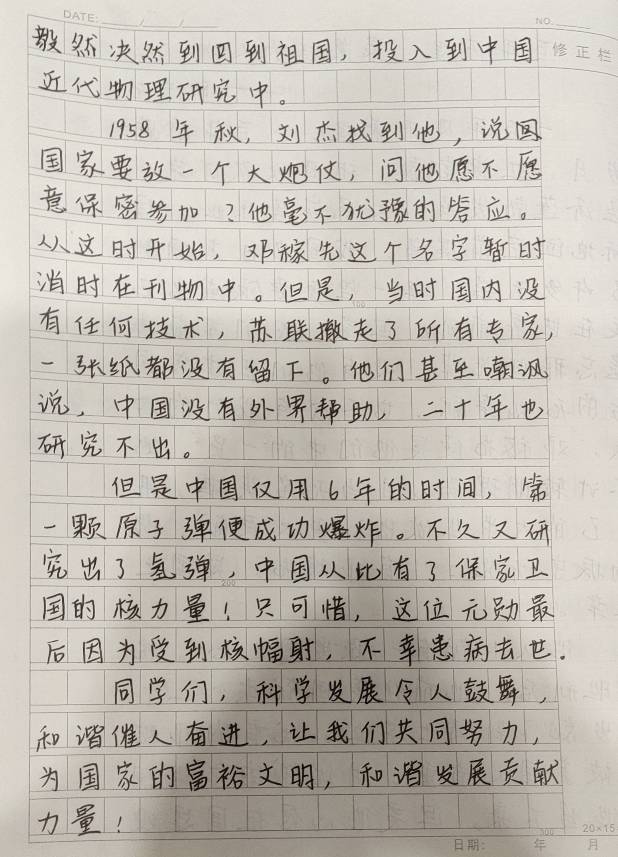 DATE: / /
NO.
修正栏
毅然决然到四到祖国，投入到中国
近代物理研究中。
1958年秋，刘杰找到他，说国
国家要放一个大炮仗，问他愿不愿
意保密参加？他毫不犹豫的答应。
从这时开始，邓稼先这个名字暂时
消时在刊物中。但是，当时国内没
100
有任何技术，苏联撤走了所有专家，
一张纸都没有留下。他们甚至嘲讽
说，中国没有外界帮助，二十年也
研究不出。
但是中国仅用6年的时间，第
一颗原子弹便成功爆炸。不久又研
究出了氢弹，中国从此有了保家卫
200
国的核力量！只可惜，这位元勋最
后因为受到核幅射，不幸患病去世.
同学们，科学发展令人鼓舞，
和谐催人奋进，让我们共同努力，
为国家的富裕文明，和谐发展贡献
力量！
300
20×15
日期： 年 月